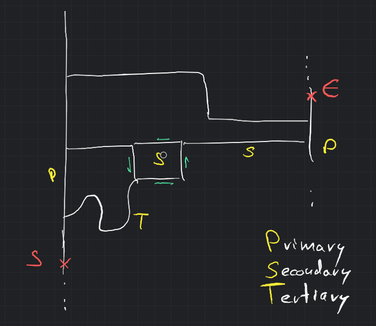 E
S
S
P
P
T
S
Primary
Secoudary
Tertiary